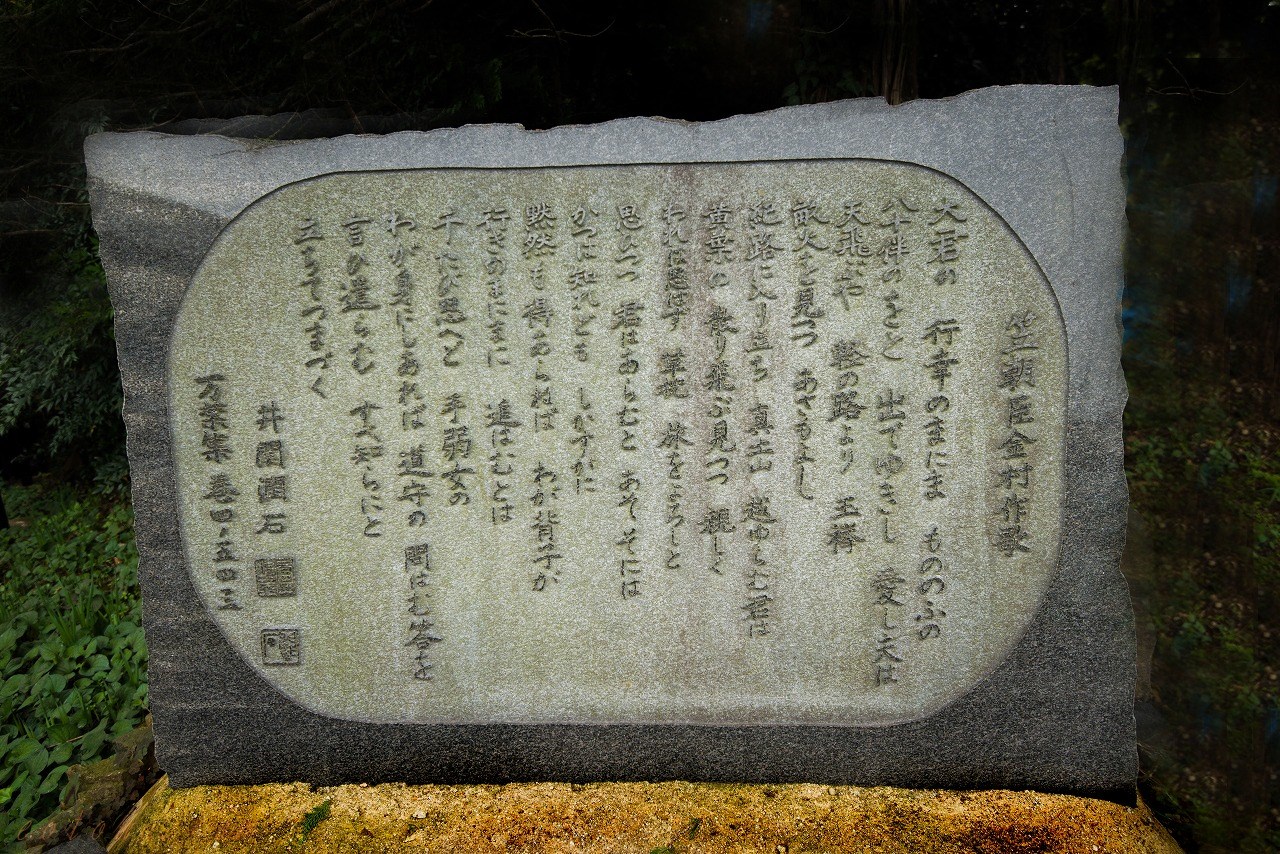 笠朝臣金村作歌
大君の 行幸のまにま もののふの
八十伴のをと 出でゆきし 愛し夫は
天飛ぶや 軽の路より 玉襷
畝火を見つつ あさもよし
紀路に入り立ち 真土山 越ゆらむ君は
黄葉の 散り飛ぶ見つつ 親しく
われは思はず 草枕 旅をよろしと
思ひつつ 君はあらむと あそそには
かつは知れども しかすがに
黙然も得あらねば わが背子が
行きのまにまに 追はむとは
千たび思へど 手弱女の
わが身にしあれば 道守の 問はむ答を
言ひ遣らむ すべ知らにと
立ちてつまづく
井関関石
万葉集 巻四・五四三